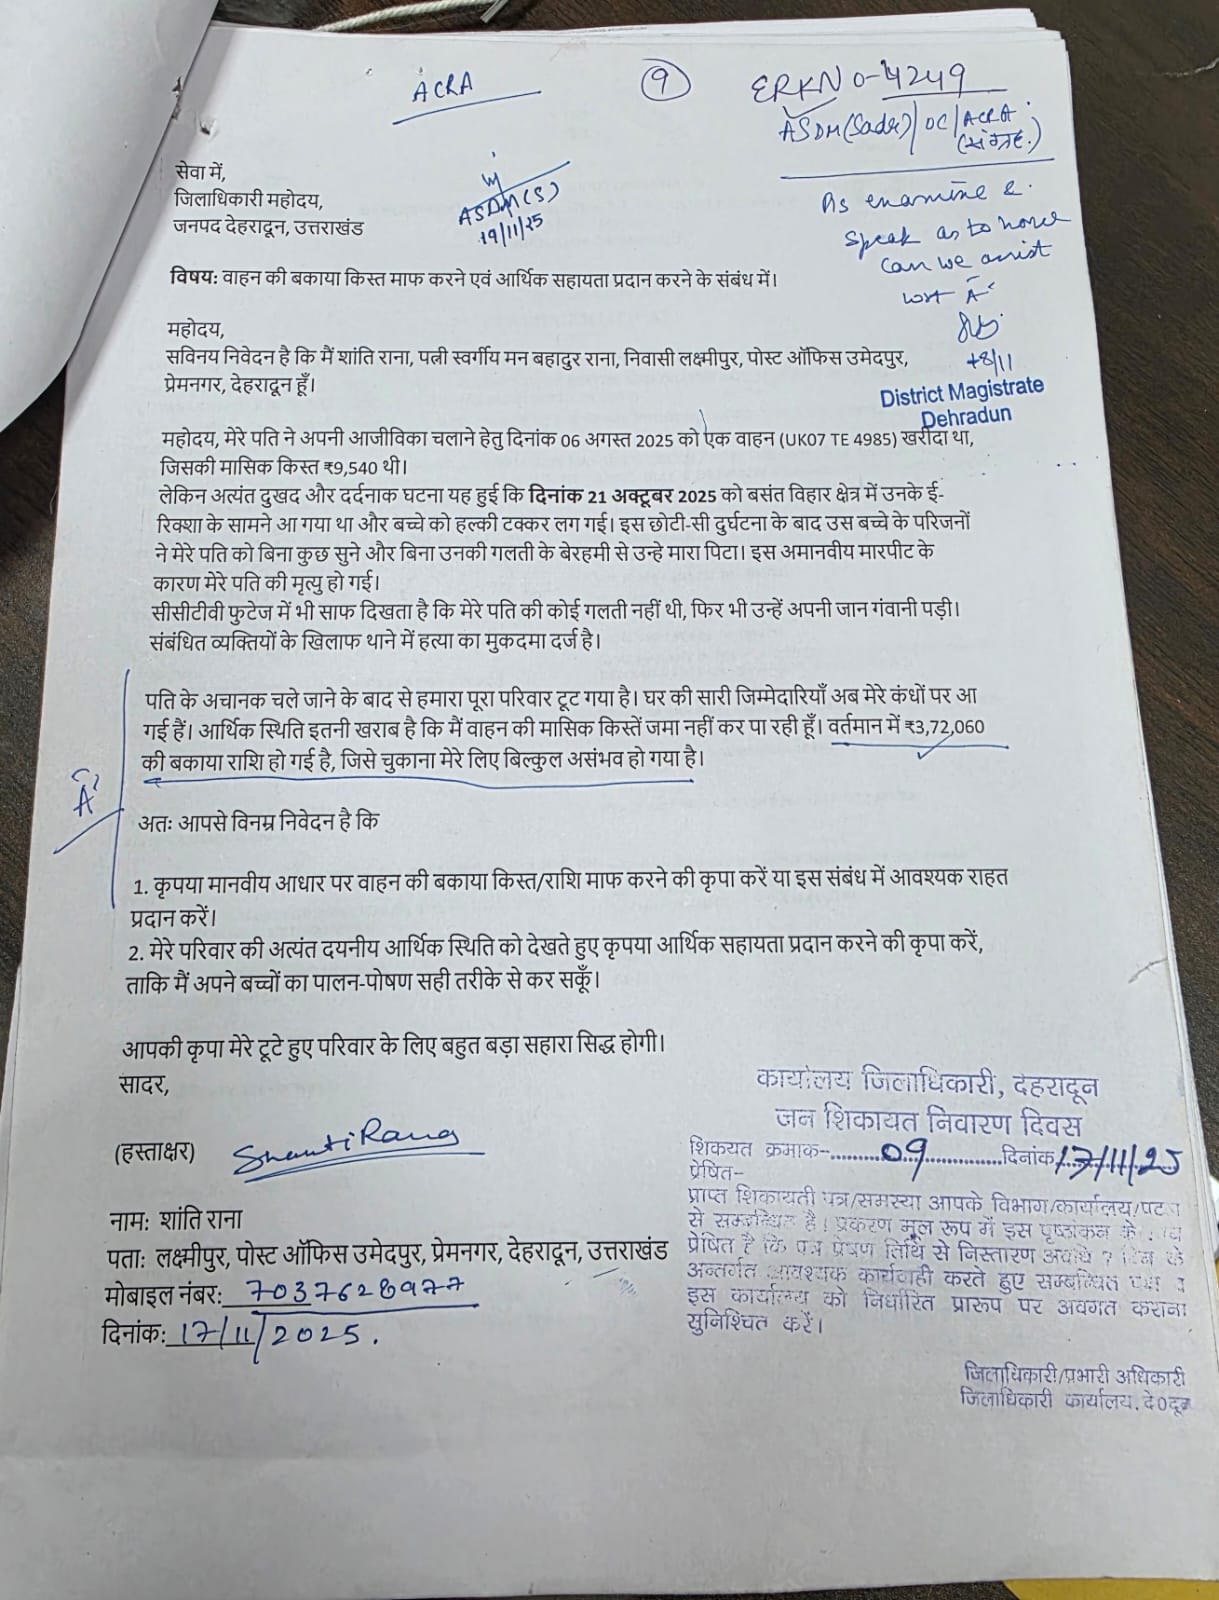 ACRA
9
ERKNO-4249
ASDM(Sadar)/OC/ACRA
(संग्रह.)
सेवा में,
जिलाधिकारी महोदय,
जनपद देहरादून, उत्तराखंड
ASDM(S)
19/11/25
As examine &
speak as to how
can we assist
wrt 'A'
18/11
District Magistrate
Dehradun
विषय: वाहन की बकाया किस्त माफ करने एवं आर्थिक सहायता प्रदान करने के संबंध में।
महोदय,
सविनय निवेदन है कि मैं शांति राना, पत्नी स्वर्गीय मन बहादुर राना, निवासी लक्ष्मीपुर, पोस्ट ऑफिस उमेदपुर,
प्रेमनगर, देहरादून हूँ।
महोदय, मेरे पति ने अपनी आजीविका चलाने हेतु दिनांक 06 अगस्त 2025 को एक वाहन (UK07 TE 4985) खरीदा था,
जिसकी मासिक किस्त ₹9,540 थी।
लेकिन अत्यंत दुखद और दर्दनाक घटना यह हुई कि दिनांक 21 अक्टूबर 2025 को बसंत विहार क्षेत्र में उनके ई-
रिक्शा के सामने आ गया था और बच्चे को हल्की टक्कर लग गई। इस छोटी-सी दुर्घटना के बाद उस बच्चे के परिजनों
ने मेरे पति को बिना कुछ सुने और बिना उनकी गलती के बेरहमी से उन्हे मारा पिटा। इस अमानवीय मारपीट के
कारण मेरे पति की मृत्यु हो गई।
सीसीटीवी फुटेज में भी साफ दिखता है कि मेरे पति की कोई गलती नहीं थी, फिर भी उन्हें अपनी जान गंवानी पड़ी।
संबंधित व्यक्तियों के खिलाफ थाने में हत्या का मुकदमा दर्ज है।
पति के अचानक चले जाने के बाद से हमारा पूरा परिवार टूट गया है। घर की सारी जिम्मेदारियाँ अब मेरे कंधों पर आ
गई हैं। आर्थिक स्थिति इतनी खराब है कि मैं वाहन की मासिक किस्तें जमा नहीं कर पा रही हूँ। वर्तमान में ₹3,72,060
की बकाया राशि हो गई है, जिसे चुकाना मेरे लिए बिल्कुल असंभव हो गया है।
'A'
अतः आपसे विनम्र निवेदन है कि
1. कृपया मानवीय आधार पर वाहन की बकाया किस्त/राशि माफ करने की कृपा करें या इस संबंध में आवश्यक राहत
प्रदान करें।
2. मेरे परिवार की अत्यंत दयनीय आर्थिक स्थिति को देखते हुए कृपया आर्थिक सहायता प्रदान करने की कृपा करें,
ताकि मैं अपने बच्चों का पालन-पोषण सही तरीके से कर सकूँ।
आपकी कृपा मेरे टूटे हुए परिवार के लिए बहुत बड़ा सहारा सिद्ध होगी।
सादर,
(हस्ताक्षर) Shanti Rana
नाम: शांति राना
पता: लक्ष्मीपुर, पोस्ट ऑफिस उमेदपुर, प्रेमनगर, देहरादून, उत्तराखंड
मोबाइल नंबर: 7037628977
दिनांक: 17/11/2025.
कार्यालय जिलाधिकारी, देहरादून
जन शिकायत निवारण दिवस
शिकयत क्रमाक-.........09...............दिनांक 17/11/25
प्रेषित-
प्राप्त शिकायती पत्र/समस्या आपके विभाग/कार्यालय/पटल
से सम्बन्धित है। प्रकरण मूल रूप में इस पृष्ठांकन के
प्रेषित है कि पत्र प्रेषण तिथि से निस्तारण अवधि 7 दिन के
अन्तर्गत आवश्यक कार्यवाही करते हुए सम्बन्धित
इस कार्यालय को निर्धारित प्रारूप पर अवगत कराना
सुनिश्चित करें।
जिलाधिकारी/प्रभारी अधिकारी
जिलाधिकारी कार्यालय, दे0दून